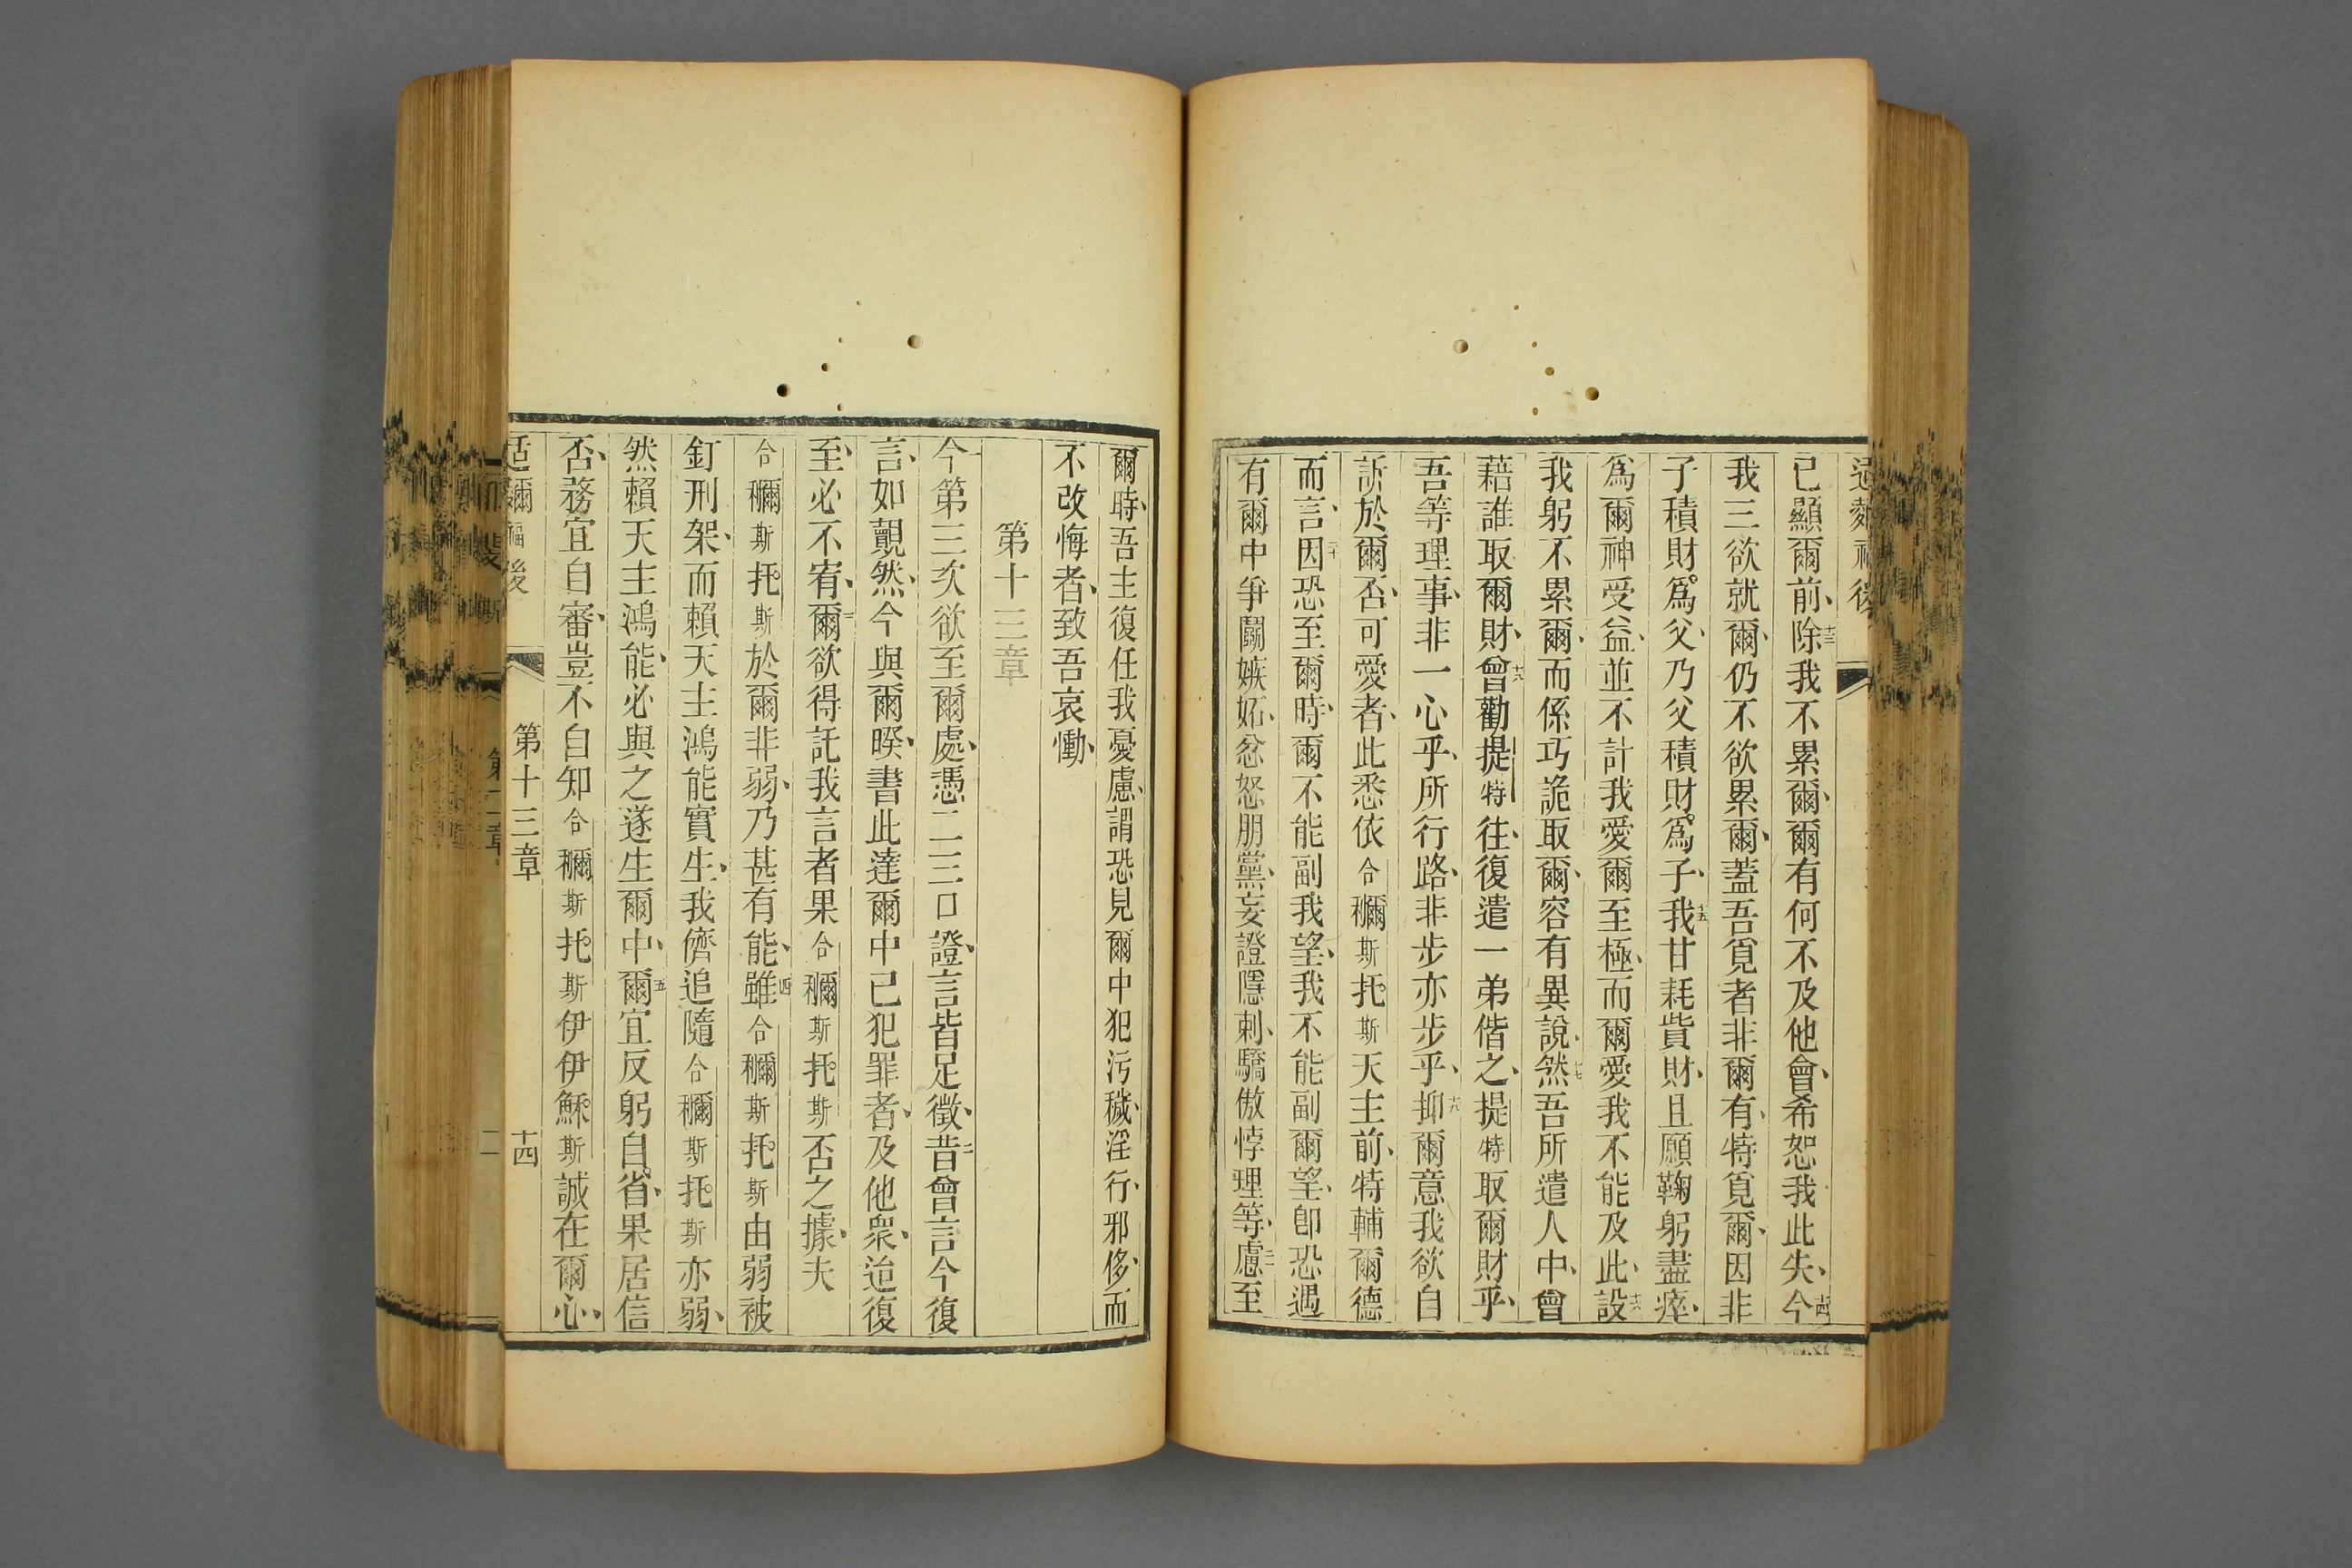 已顯爾前、除十三我不累爾、爾有何不及他會、希恕我此失、今十四
我三欲就爾、仍不欲累爾、蓋吾覓者非爾有、特覓爾、因非
子積財爲父、乃父積財爲子、我十五甘耗貲財、且願鞠躬盡瘁、
爲爾神受益、並不計我愛爾至極、而爾愛我不能及此、設十六
我躬不累爾、而係巧詭取爾、容有異說、然十七吾所遣人中、曾
藉誰取爾財、曾十八勸提特往、復遣一弟偕之、提特取爾財乎、
吾等理事、非一心乎、所行路、非步亦步乎、抑十九爾意我欲自
訴於爾否、可愛者、此悉依合穪斯托斯天主前、特輔爾德
而言、因二十恐至爾時、爾不能副我望、我不能副爾望、卽恐遇
有爾中爭鬭嫉妬、忿怒朋黨、妄證隱刺、驕傲悖理等、慮二一至
爾時、吾主復任我憂慮、謂恐見爾中犯污穢、淫行、邪侈、而
不改悔者、致吾哀慟、
第十三章
今一第三次欲至爾處、憑二三口證、言皆足徵、昔二曾言今復
言、如覿然、今與爾暌、書此達爾中已犯罪者、及他衆、迨復
至、必不宥、爾三欲得託我言者果合穪斯托斯否之據、夫
合穪斯托斯於爾非弱、乃甚有能、雖四合穪斯托斯由弱被
釘刑架、而賴天主鴻能實生、我儕追隨合穪斯托斯亦弱、
然賴天主鴻能、必與之遂生爾中、爾五宜反躬自省、果居信
否、務宜自審、豈不自知合穪斯托斯伊伊穌斯誠在爾心、
後
第十三章
十四